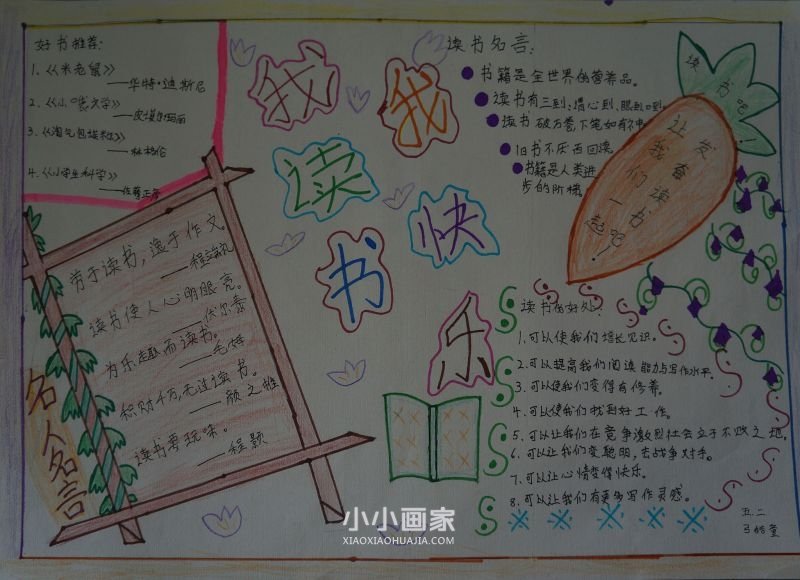 好书推荐:
1.《米老鼠》
——华特·迪斯尼
2.《小 大学》
3.《淘气包埃米尔》
——林格伦
4.《小学生科学》
我读书
我快乐
读书名言:
书籍是全世界的营养品。
读书有三到:谓心到、眼到、口到
读书破万卷,下笔如有神
旧书不厌百回读。
书籍是人类进
步的阶梯。
读书吧!
让我们一起
发奋读书吧!
劳于读书,逸于作文。
——程端礼
读书使人心明眼亮。
——伏尔泰
为乐趣而读书。
——毛姆
积财千万,无过读书。
——颜之推
读书要玩味。
——程颢
名人名言
读书的好处:
1.可以使我们增长见识。
2.可以提高我们阅读能力与写作水平。
3.可以使我们变得有修养。
4.可以使我们找到好工作。
5.可以让我们在竞争激烈社会立于不败之地。
6.可以让我们变聪明,去战争对手。
7.可以让心情变得快乐。
8.可以让我们有更多写作灵感。
五.二
小小画家
XIAOXIAOHUAJIA.COM